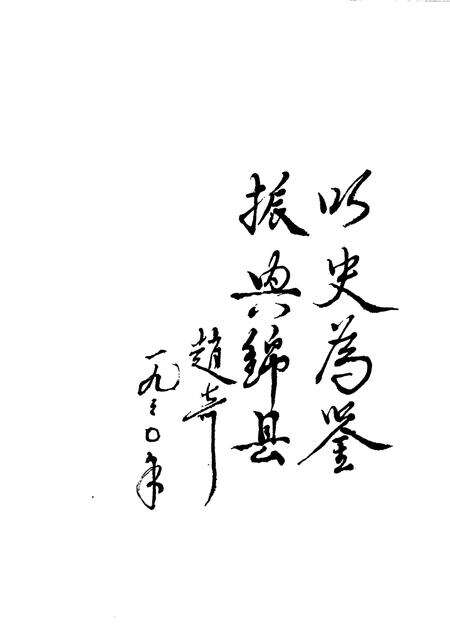 以史為鉴
振興錦县
趙奇
一九々〇年